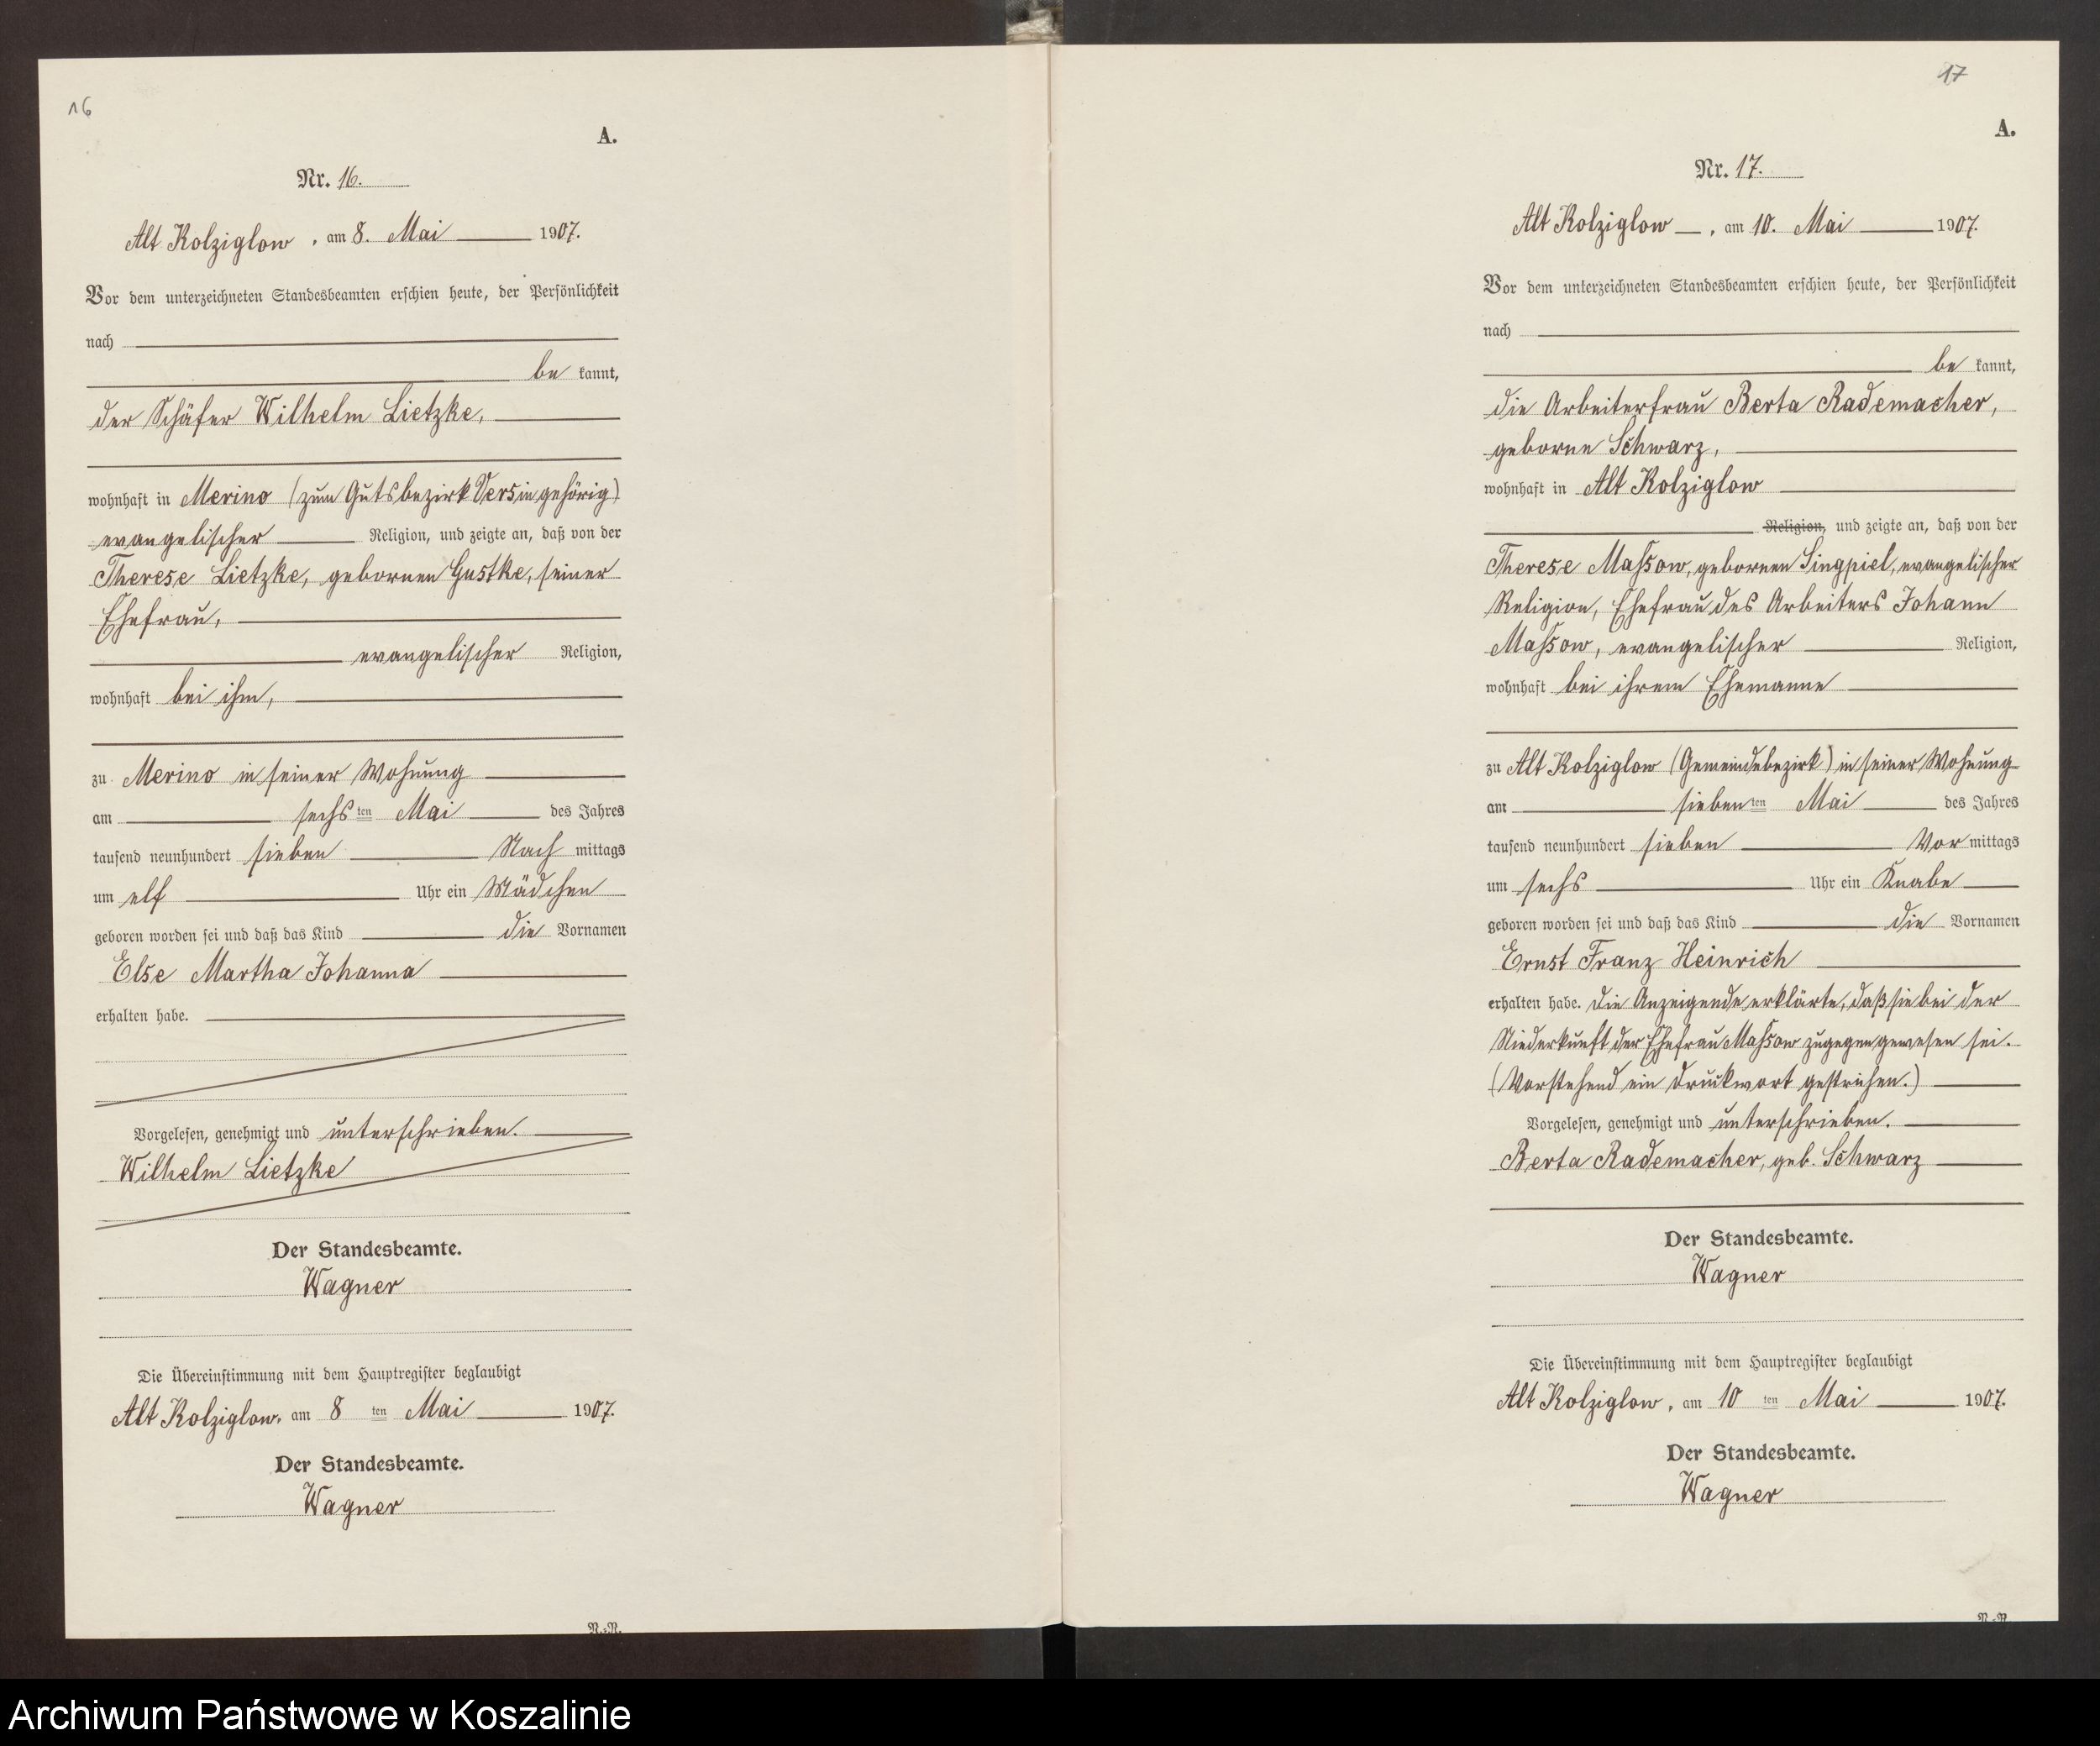 16
A.
Nr. 16.
Alt Kolziglow, am 8. Mai 1907.
Vor dem unterzeichneten Standesbeamten erschien heute, der Persönlichkeit
nach
be kannt,
der Schäfer Wilhelm Lietzke,
wohnhaft in Merino (zum Gutsbezirk Versin gehörig)
evangelischer Religion, und zeigte an, daß von der
Therese Lietzke, gebornen Gustke, seiner
Ehefrau,
evangelischer Religion,
wohnhaft bei ihm,
zu Merino in seiner Wohnung
am sechs ten Mai des Jahres
tausend neunhundert sieben Nach mittags
um elf Uhr ein Mädchen
geboren worden sei und daß das Kind die Vornamen
Else Martha Johanna
erhalten habe.
Vorgelesen, genehmigt und unterschrieben.
Wilhelm Lietzke
Der Standesbeamte.
Wagner
Die Übereinstimmung mit dem Hauptregister beglaubigt
Alt Kolziglow, am 8 ten Mai 1907.
Der Standesbeamte.
Wagner
N.=N.
17
A.
Nr. 17.
Alt Kolziglow, am 10. Mai 1907.
Vor dem unterzeichneten Standesbeamten erschien heute, der Persönlichkeit
nach
be kannt,
die Arbeiterfrau Berta Rademacher,
geborne Schwarz,
wohnhaft in Alt Kolziglow
Religion, und zeigte an, daß von der
Therese Massow, gebornen Singpiel, evangelischer
Religion, Ehefrau des Arbeiters Johann
Massow, evangelischer Religion,
wohnhaft bei ihrem Ehemanne
zu Alt Kolziglow (Gemeindebezirk) in seiner Wohnung
am sieben ten Mai des Jahres
tausend neunhundert sieben Vor mittags
um sechs Uhr ein Knabe
geboren worden sei und daß das Kind die Vornamen
Ernst Franz Heinrich
erhalten habe. Die Anzeigende erklärte, daß sie bei der
Niederkunft der Ehefrau Massow zugegen gewesen sei.
(Vorstehend ein Druckwort gestrichen.)
Vorgelesen, genehmigt und unterschrieben.
Berta Rademacher, geb. Schwarz
Der Standesbeamte.
Wagner
Die Übereinstimmung mit dem Hauptregister beglaubigt
Alt Kolziglow, am 10 ten Mai 1907.
Der Standesbeamte.
Wagner
N.=N.
Archiwum Państwowe w Koszalinie